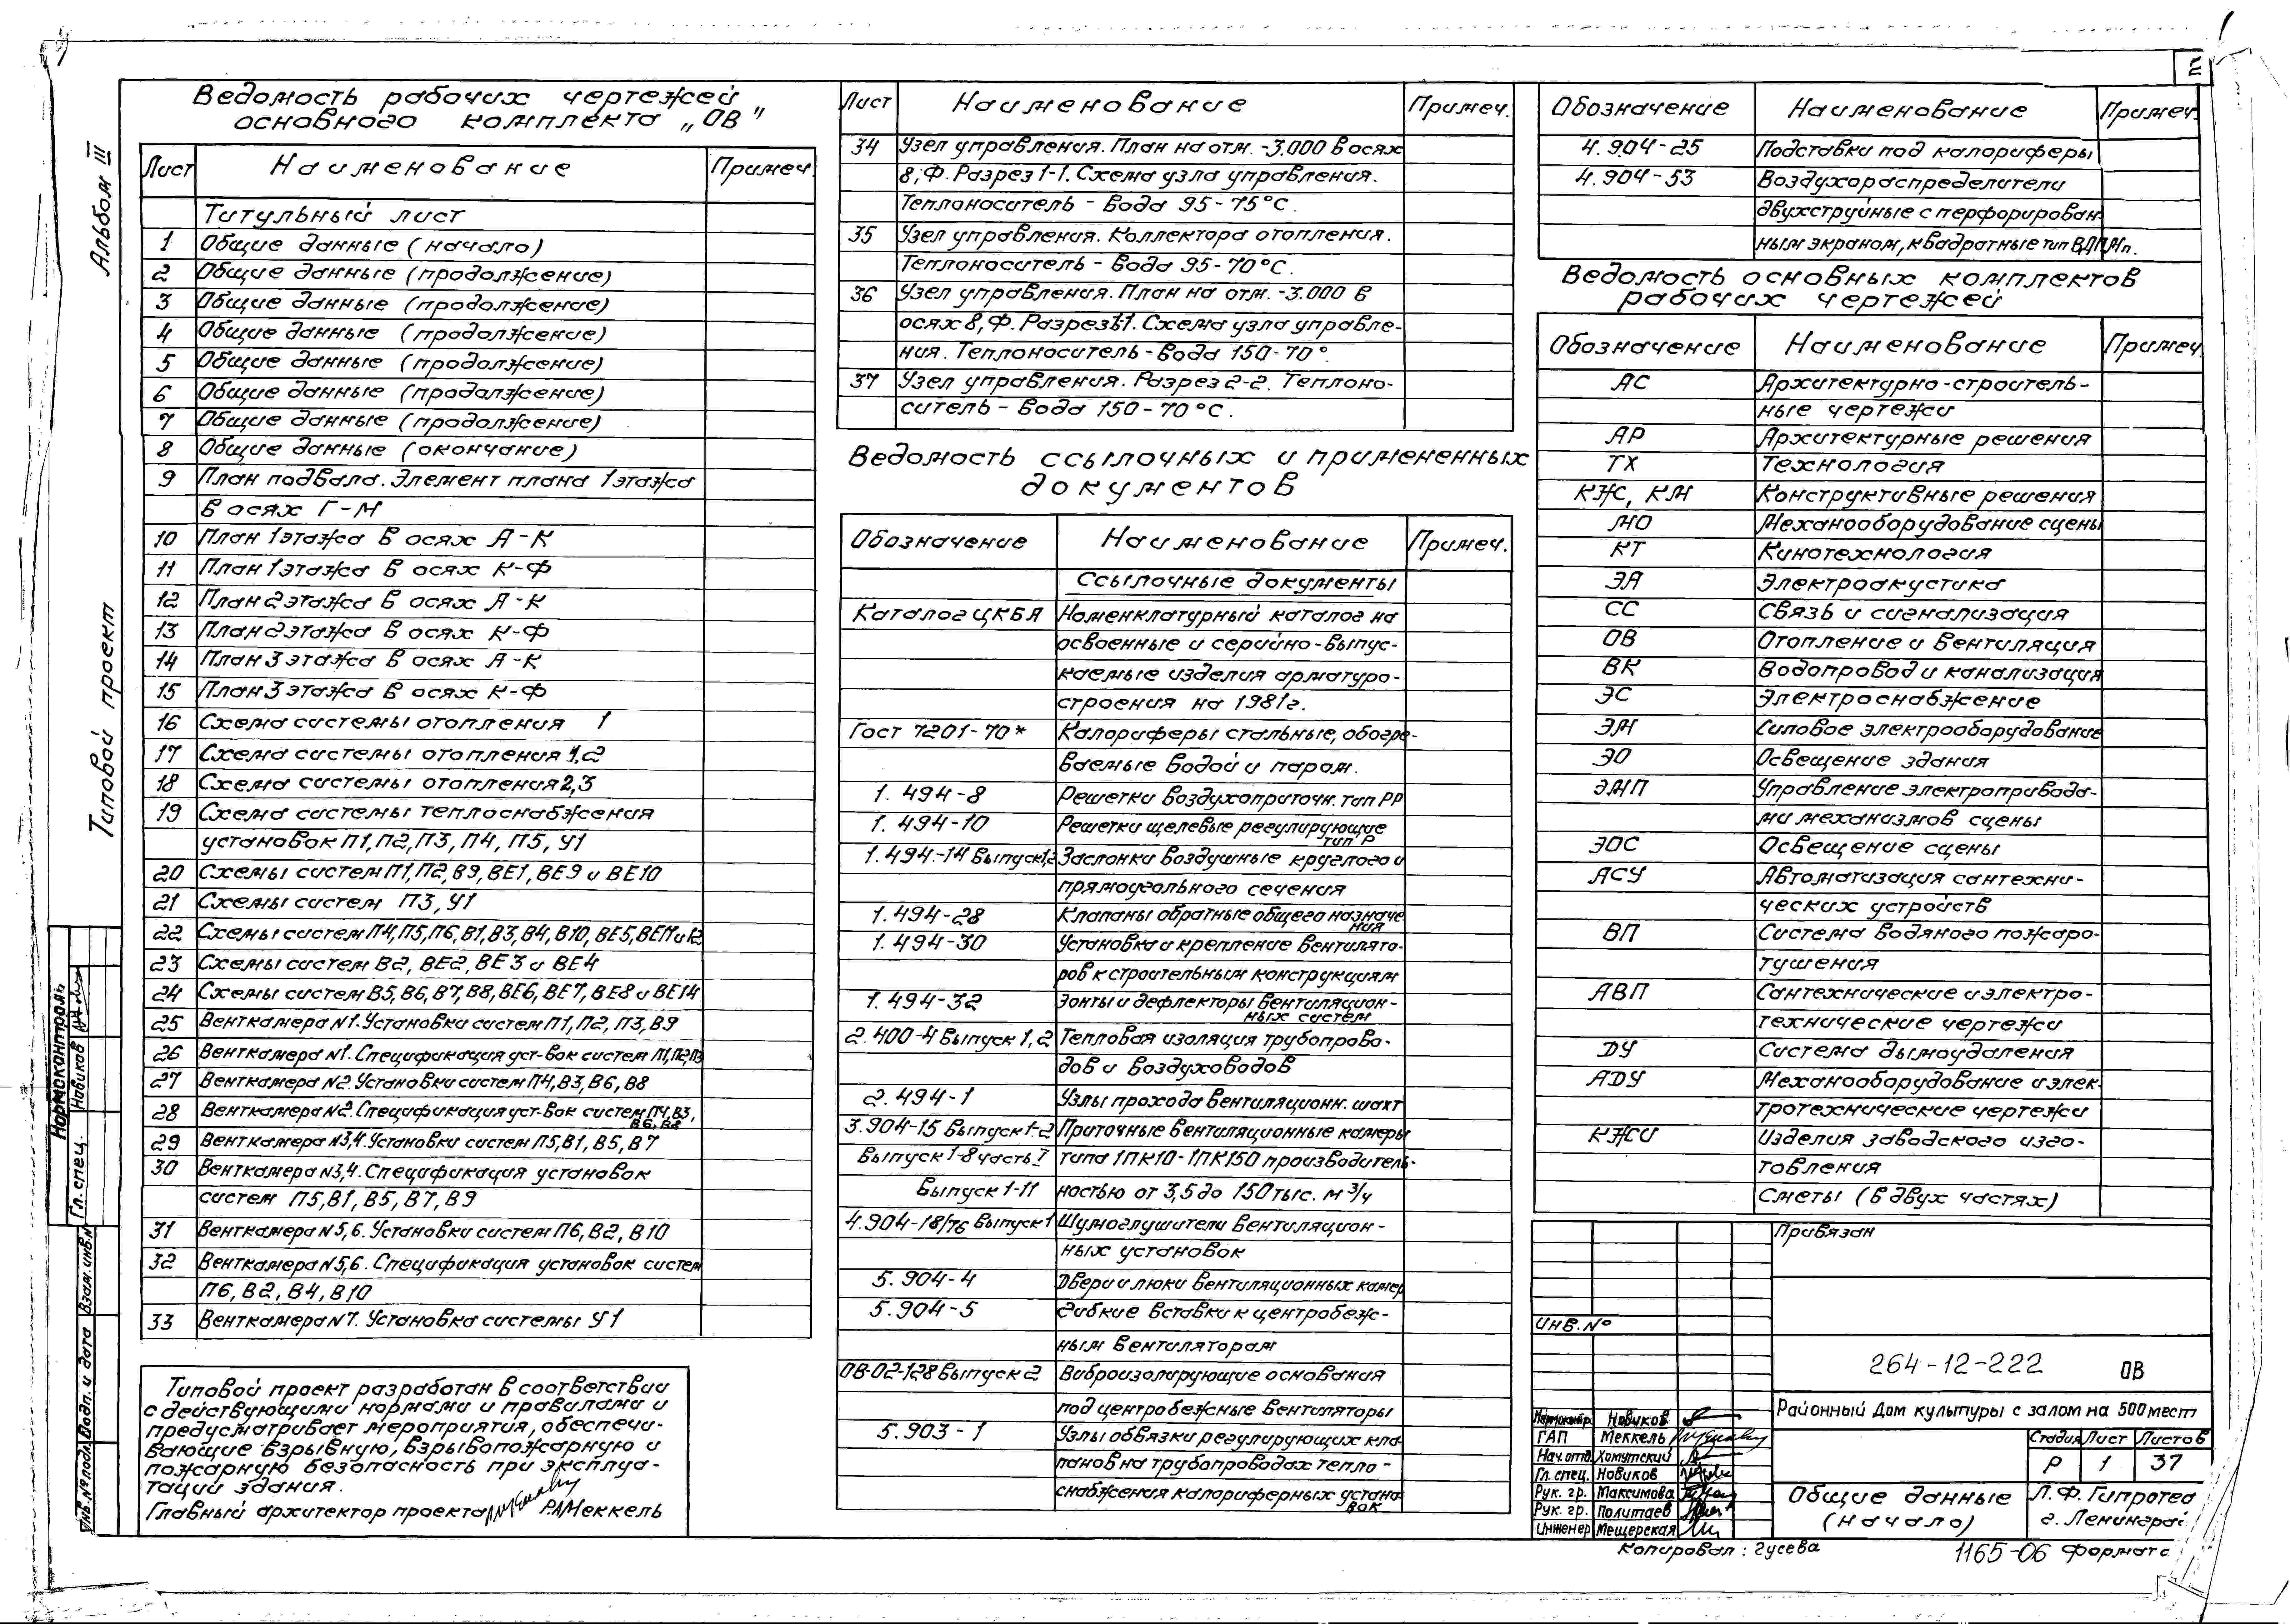 2
Альбом III
Типовой проект
Ведомость рабочих чертежей
основного комплекта „ОВ"
Лист Наименование Примеч.
Титульный лист
1 Общие данные (начало)
2 Общие данные (продолжение)
3 Общие данные (продолжение)
4 Общие данные (продолжение)
5 Общие данные (продолжение)
6 Общие данные (продолжение)
7 Общие данные (продолжение)
8 Общие данные (окончание)
9 План подвала. Элемент плана 1 этажа
в осях Г-М
10 План 1 этажа в осях А-К
11 План 1 этажа в осях К-Ф
12 План 2 этажа в осях А-К
13 План 2 этажа в осях К-Ф
14 План 3 этажа в осях А-К
15 План 3 этажа в осях К-Ф
16 Схема системы отопления 1
17 Схема системы отопления 1,2
18 Схема системы отопления 2,3
19 Схема системы теплоснабжения
установок П1, П2, П3, П4, П5, У1
20 Схемы систем П1, П2, В9, ВЕ1, ВЕ9 и ВЕ10
21 Схемы систем П3, У1
22 Схемы систем П4, П5, П6, В1, В3, В4, В10, ВЕ5, ВЕ11 и 12
23 Схемы систем В2, ВЕ2, ВЕ3 и ВЕ4
24 Схемы систем В5, В6, В7, В8, ВЕ6, ВЕ7, ВЕ8 и ВЕ14
25 Венткамера №1. Установки систем П1, П2, П3, В9
26 Венткамера №1. Спецификация уст-вок систем П1, П2, П3
27 Венткамера №2. Установки систем П4, В3, В6, В8
28 Венткамера №2. Спецификация уст-вок систем П4, В3,
В6, В8
29 Венткамера №3,4. Установки систем П5, В1, В5, В7
30 Венткамера №3,4. Спецификация установок
систем П5, В1, В5, В7, В9
31 Венткамера №5,6. Установки систем П6, В2, В10
32 Венткамера №5,6. Спецификация установок систем
П6, В2, В4, В10
33 Венткамера №7. Установка системы У1
Типовой проект разработан в соответствии
с действующими нормами и правилами и
предусматривает мероприятия, обеспечи-
вающие взрывную, взрывопожарную и
пожарную безопасность при эксплуа-
тации здания.
Главный архитектор проекта Р.А.Меккель
Лист Наименование Примеч.
34 Узел управления. План на отм. -3.000 в осях
8, Ф. Разрез 1-1. Схема узла управления.
Теплоноситель - вода 95-75°С.
35 Узел управления. Коллектора отопления.
Теплоноситель - вода 95-70°С.
36 Узел управления. План на отм. -3.000 в
осях 8, Ф. Разрез 1-1. Схема узла управле-
ния. Теплоноситель - вода 150-70°.
37 Узел управления. Разрез 2-2. Теплоно-
ситель - вода 150-70°С.
Ведомость ссылочных и примененных
документов
Обозначение Наименование Примеч.
Ссылочные документы
Каталог ЦКБА Номенклатурный каталог на
освоенные и серийно-выпус-
каемые изделия арматуро-
строения на 1981г.
Гост 7201-70* Калориферы стальные, обогре-
ваемые водой и паром.
1.494-8 Решетки воздухоприточн. тип РР
1.494-10 Решетки щелевые регулирующие
тип Р
1.494-14 Выпуск 1,2 Заслонки воздушные круглого и
прямоугольного сечения
1.494-28 Клапаны обратные общего назначе
ния
1.494-30 Установка и крепление вентилято-
ров к строительным конструкциям
1.494-32 Зонты и дефлекторы вентиляцион-
ных систем
2.400-4 Выпуск 1,2 Тепловая изоляция трубопрово-
дов и воздуховодов
2.494-1 Узлы прохода вентиляционн. шахт
3.904-15 Выпуск 1-2 Приточные вентиляционные камеры
Выпуск 1-8 часть I типа 1ПК10-1ПК150 производитель-
Выпуск 1-11 ностью от 3,5 до 150 тыс. м³/ч
4.904-18/76 Выпуск 1 Шумоглушители вентиляцион-
ных установок
5.904-4 Двери и люки вентиляционных камер
5.904-5 Гибкие вставки к центробеж-
ным вентиляторам
ОВ-02-128 Выпуск 2 Виброизолирующие основания
под центробежные вентиляторы
5.903-1 Узлы обвязки регулирующих кла-
панов на трубопроводах тепло-
снабжения калориферных устано
вок
Обозначение Наименование Примеч.
4.904-25 Подставки под калориферы
4.904-53 Воздухораспределители
двухструйные с перфорирован
ным экраном, квадратные тип ВДПМп.
Ведомость основных комплектов
рабочих чертежей
Обозначение Наименование Примеч.
АС Архитектурно-строитель-
ные чертежи
АР Архитектурные решения
ТХ Технология
КЖ, КМ Конструктивные решения
МО Механооборудование сцены
КТ Кинотехнология
ЭА Электроакустика
СС Связь и сигнализация
ОВ Отопление и вентиляция
ВК Водопровод и канализация
ЭС Электроснабжение
ЭМ Силовое электрооборудование
ЭО Освещение здания
ЭМП Управление электропривода-
ми механизмов сцены
ЭОС Освещение сцены
АСУ Автоматизация сантехни-
ческих устройств
ВП Система водяного пожаро-
тушения
АВП Сантехнические и электро-
технические чертежи
ДУ Система дымоудаления
АДУ Механооборудование и элек-
тротехнические чертежи
КЖИ Изделия заводского изго-
товления
Сметы (в двух частях)
Привязан
Инв.№
264-12-222 ОВ
Районный Дом культуры с залом на 500 мест
Нормоконтр. Новиков
ГАП Меккель
Нач. отд. Хомутский
Гл. спец. Новиков
Рук. гр. Максимова
Рук. гр. Политаев
Инженер Мещерская
Стадия Лист Листов
Р 1 37
Общие данные
(начало)
Л.Ф. Гипротеа
г. Ленинград
Копировал: Гусева
1165-06 Формат
Нормоконтроль
Гл. спец. Новиков
Взам. инв.№
Подп. и дата
Инв.№ подл.